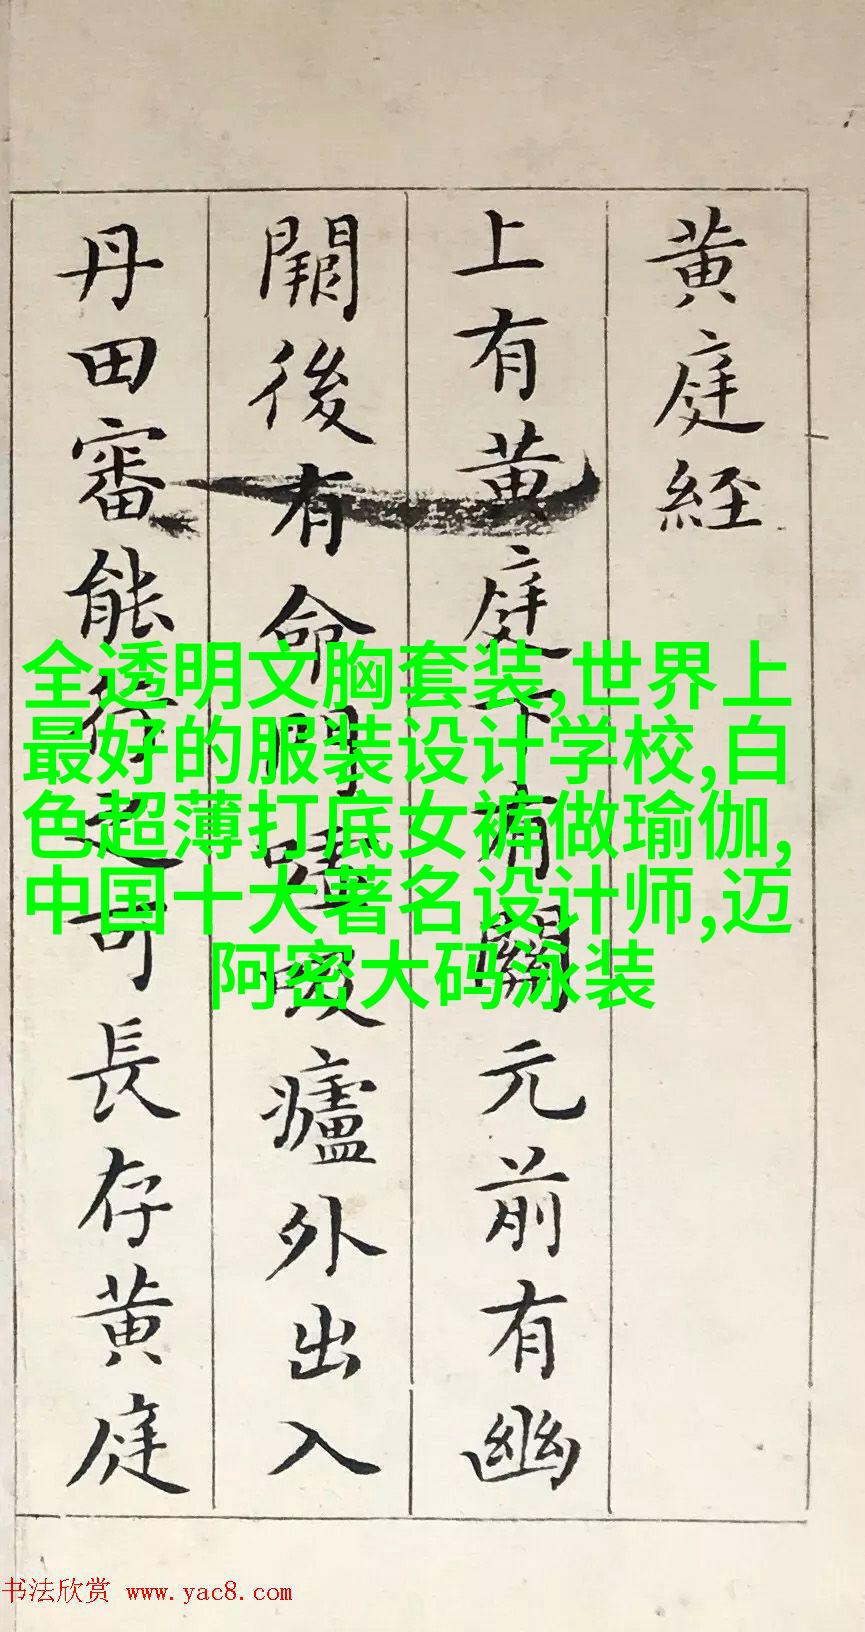 黄庭經
上有黄庭下有關元前有幽
闕後有命門嘘吸廬外出入
丹田審能行之可長存黄庭
全透明文胸套装,世界上
最好的服装设计学校,白
色超薄打底女裤做瑜伽,
中国十大著名设计师,迈
阿密大码泳装
书法欣赏 www.yac8.com